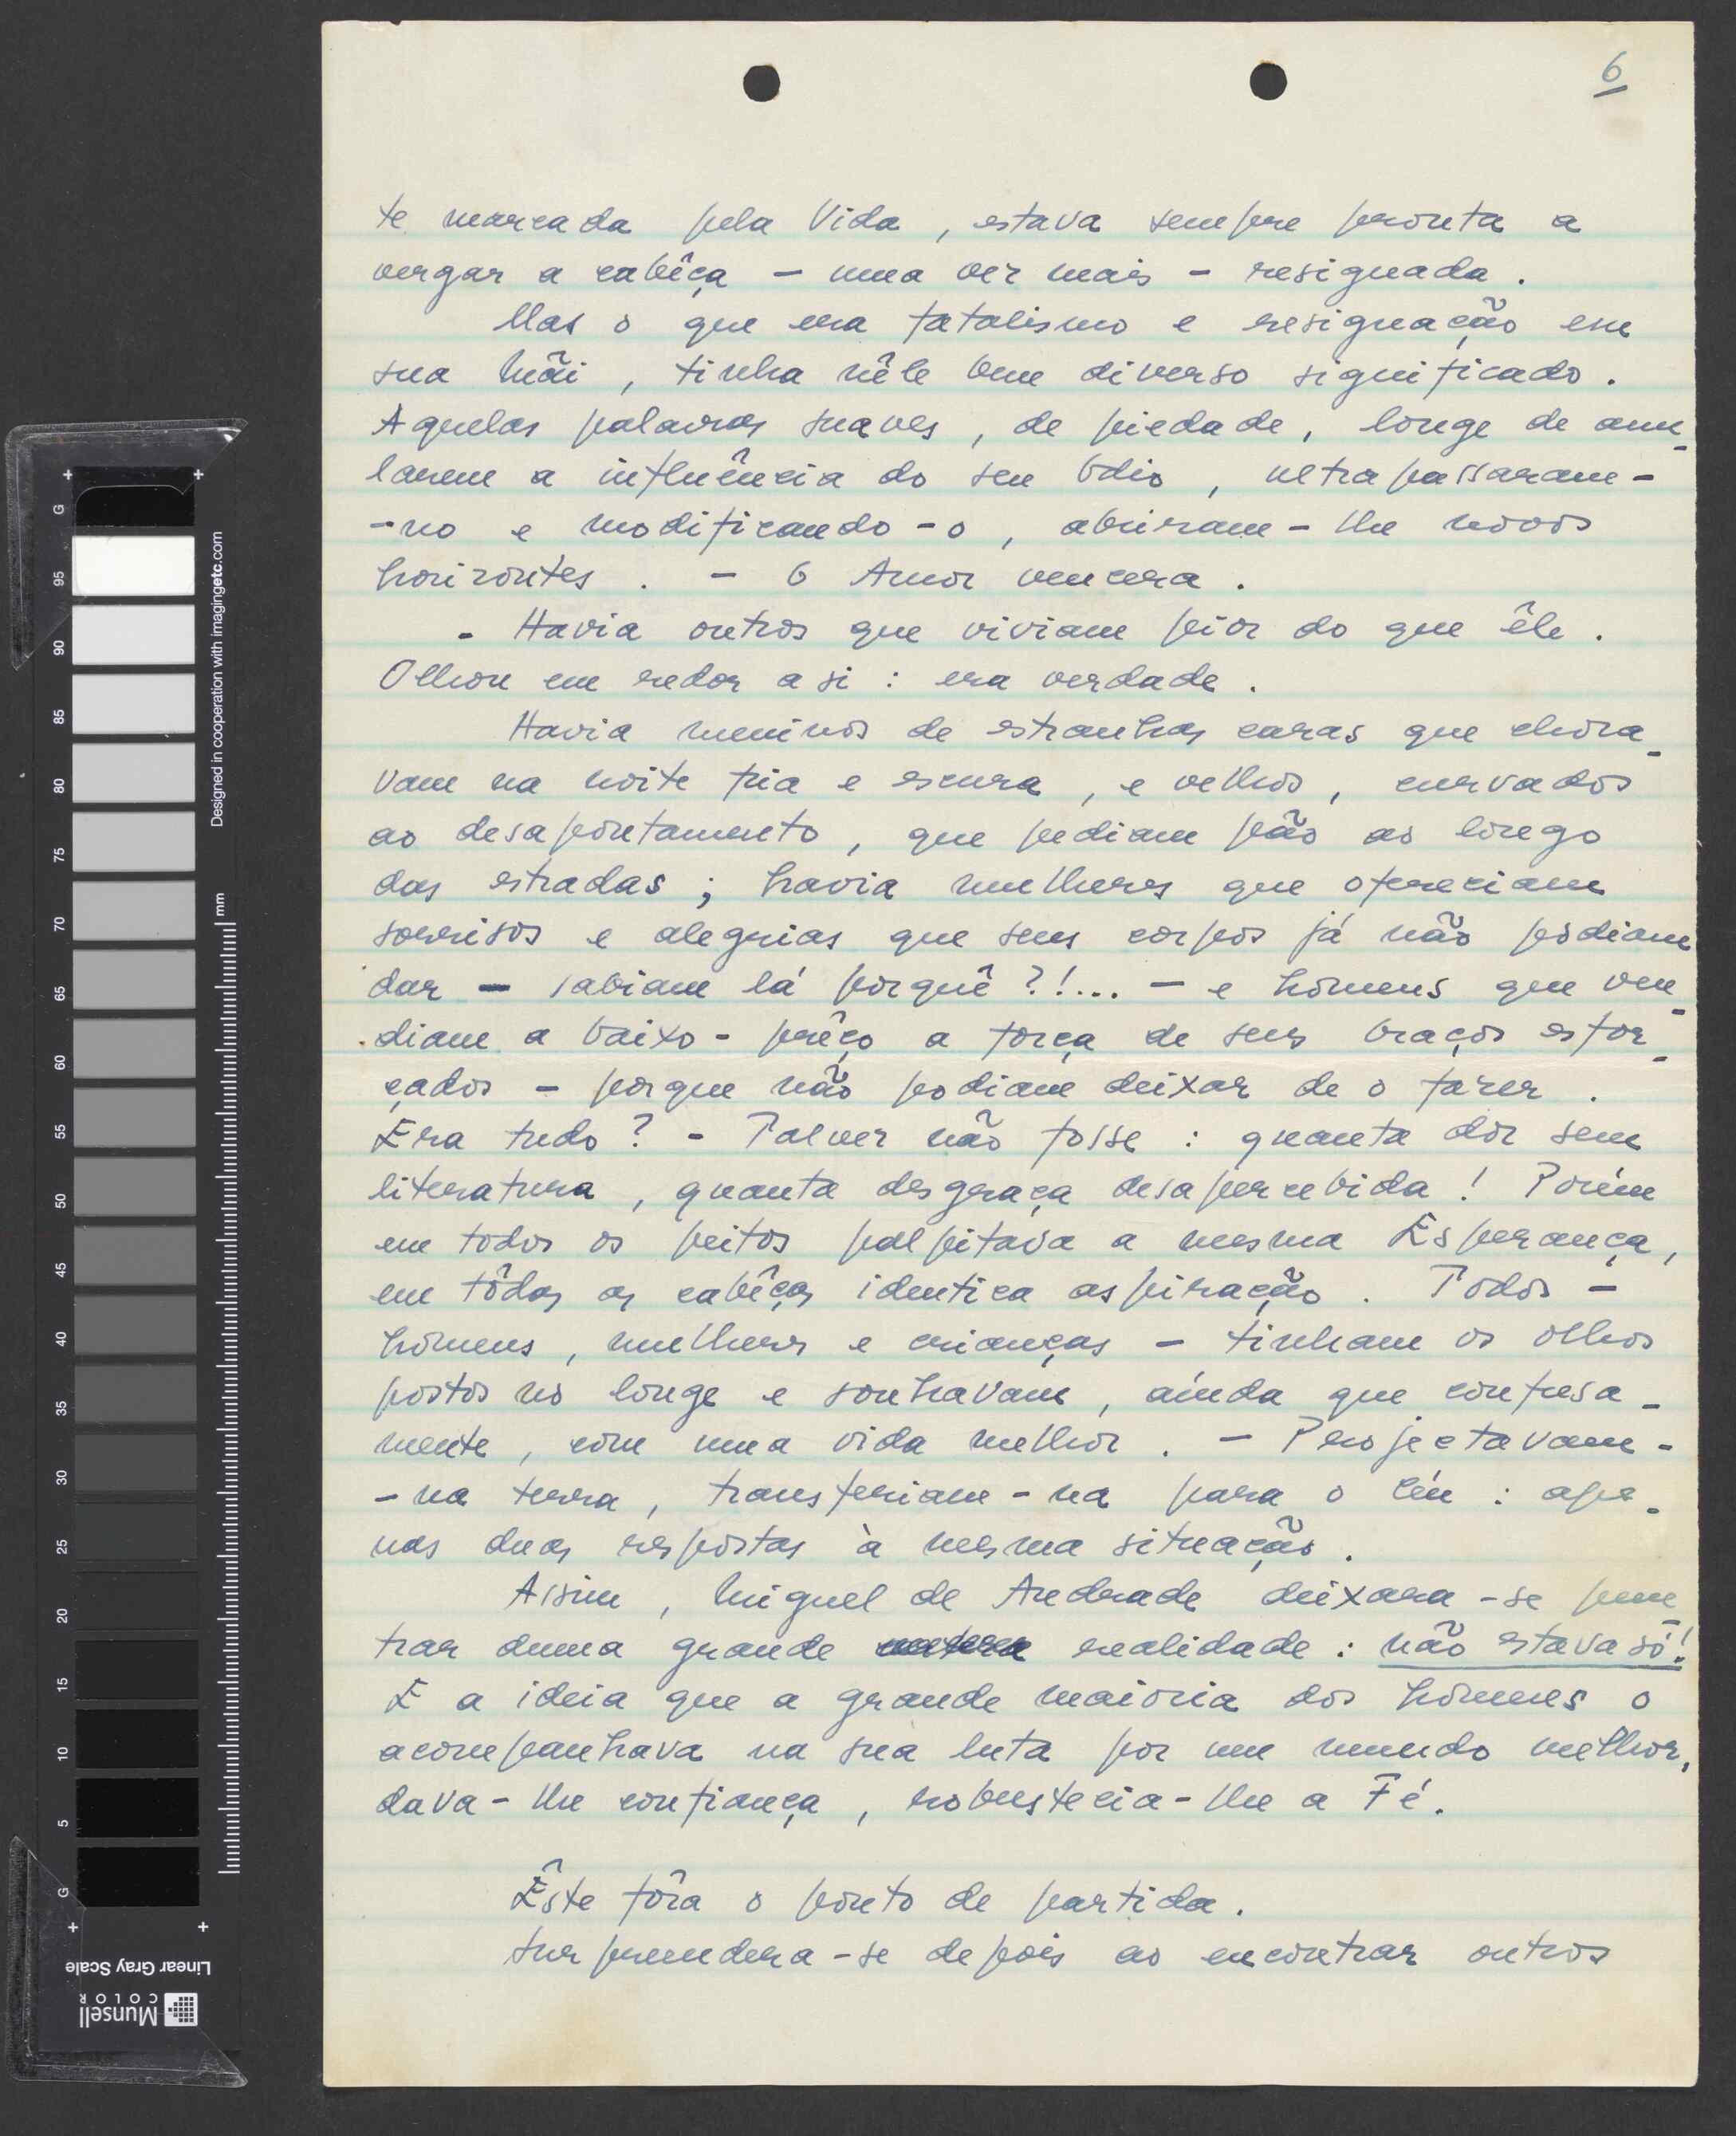 6
te marcada pela Vida, estava sempre pronta a
vergar a cabêça - uma vez mais - resignada.
Mas o que era fatalismo e resignação em
sua Mãi, tinha nêle bem diverso significado.
Aquelas palavras suaves, de piedade, longe de anu-
larem a influência do seu Ódio, ultrapassaram-
-no e modificando-o, abriram-lhe novos
horizontes. - O Amor vencera.
- Havia outros que viviam pior do que êle.
Olhou em redor a si : era verdade.
Havia meninos de estranhas caras que chora-
vam na noite fria e escura, e velhos, curvados
ao desapontamento, que pediam pão ao longo
das estradas ; havia mulheres que ofereciam
sorrisos e alegrias que seus corpos já não podiam
dar - sabiam lá porquê ?!... - e homens que ven-
diam a baixo-prêço a força de seus braços esfor-
çados - porque não podiam deixar de o fazer.
Era tudo ? - Talvez não fosse : quanta dor sem
literatura, quanta desgraça desapercebida ! Porém
em todos os peitos palpitava a mesma Esperança,
em tôdas as cabêças identica aspiração. Todos -
homens, mulheres e crianças - tinham os olhos
postos no longe e sonhavam, aínda que confusa-
mente, com uma vida melhor. - Projectavam-
-na terra, transferiam-na para o Céu : ape-
nas duas respostas à mesma situação.
Assim, Miguel de Andrade deixara-se pene
trar duma grande realidade : não estava só !
E a ideia que a grande maioria dos homens o
acompanhava na sua luta por um mundo melhor,
dava-lhe confiança, robustecia-lhe a Fé.
Êste fôra o ponto de partida.
Surpreendera-se depois ao encontrar outros
Designed in cooperation with imagingetc.com
mm
G
95
90
85
80
75
70
65
60
55
50
45
40
35
30
25
20
15
10
5
G
Linear Gray Scale
Munsell
COLOR